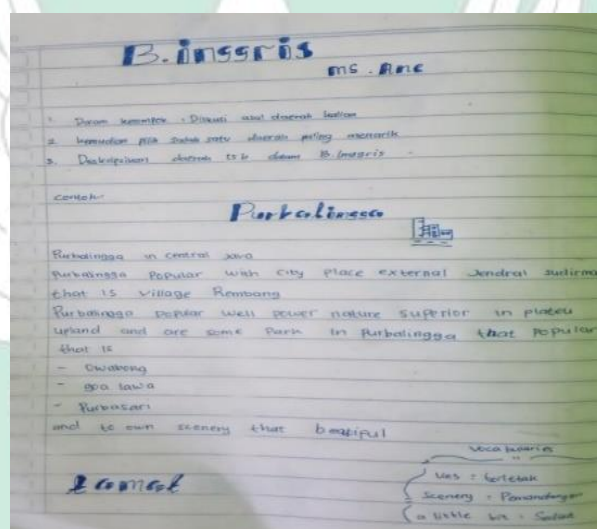 B. inggris
ms. Ane
1. Dalam kelompok, Diskusi asal daerah kalian
2. kemudian pilih salah satu daerah paling menarik
3. Deskripsikan daerah tsb dlam B. Inggris
contoh:
Purbalingga
Purbalingga in central Java
Purbalingga Popular with city place external Jendral sudirma
that is village Rembang
Purbalingga popular well power nature superior in plateu
upland and are some Park in Purbalingga that Popular
that is
- Owabong
- goa lawa
- Purbasari
and to own scenery that beatipul
vocabularies
lies = terletak
Scenery = Pemandangan
a little bit =